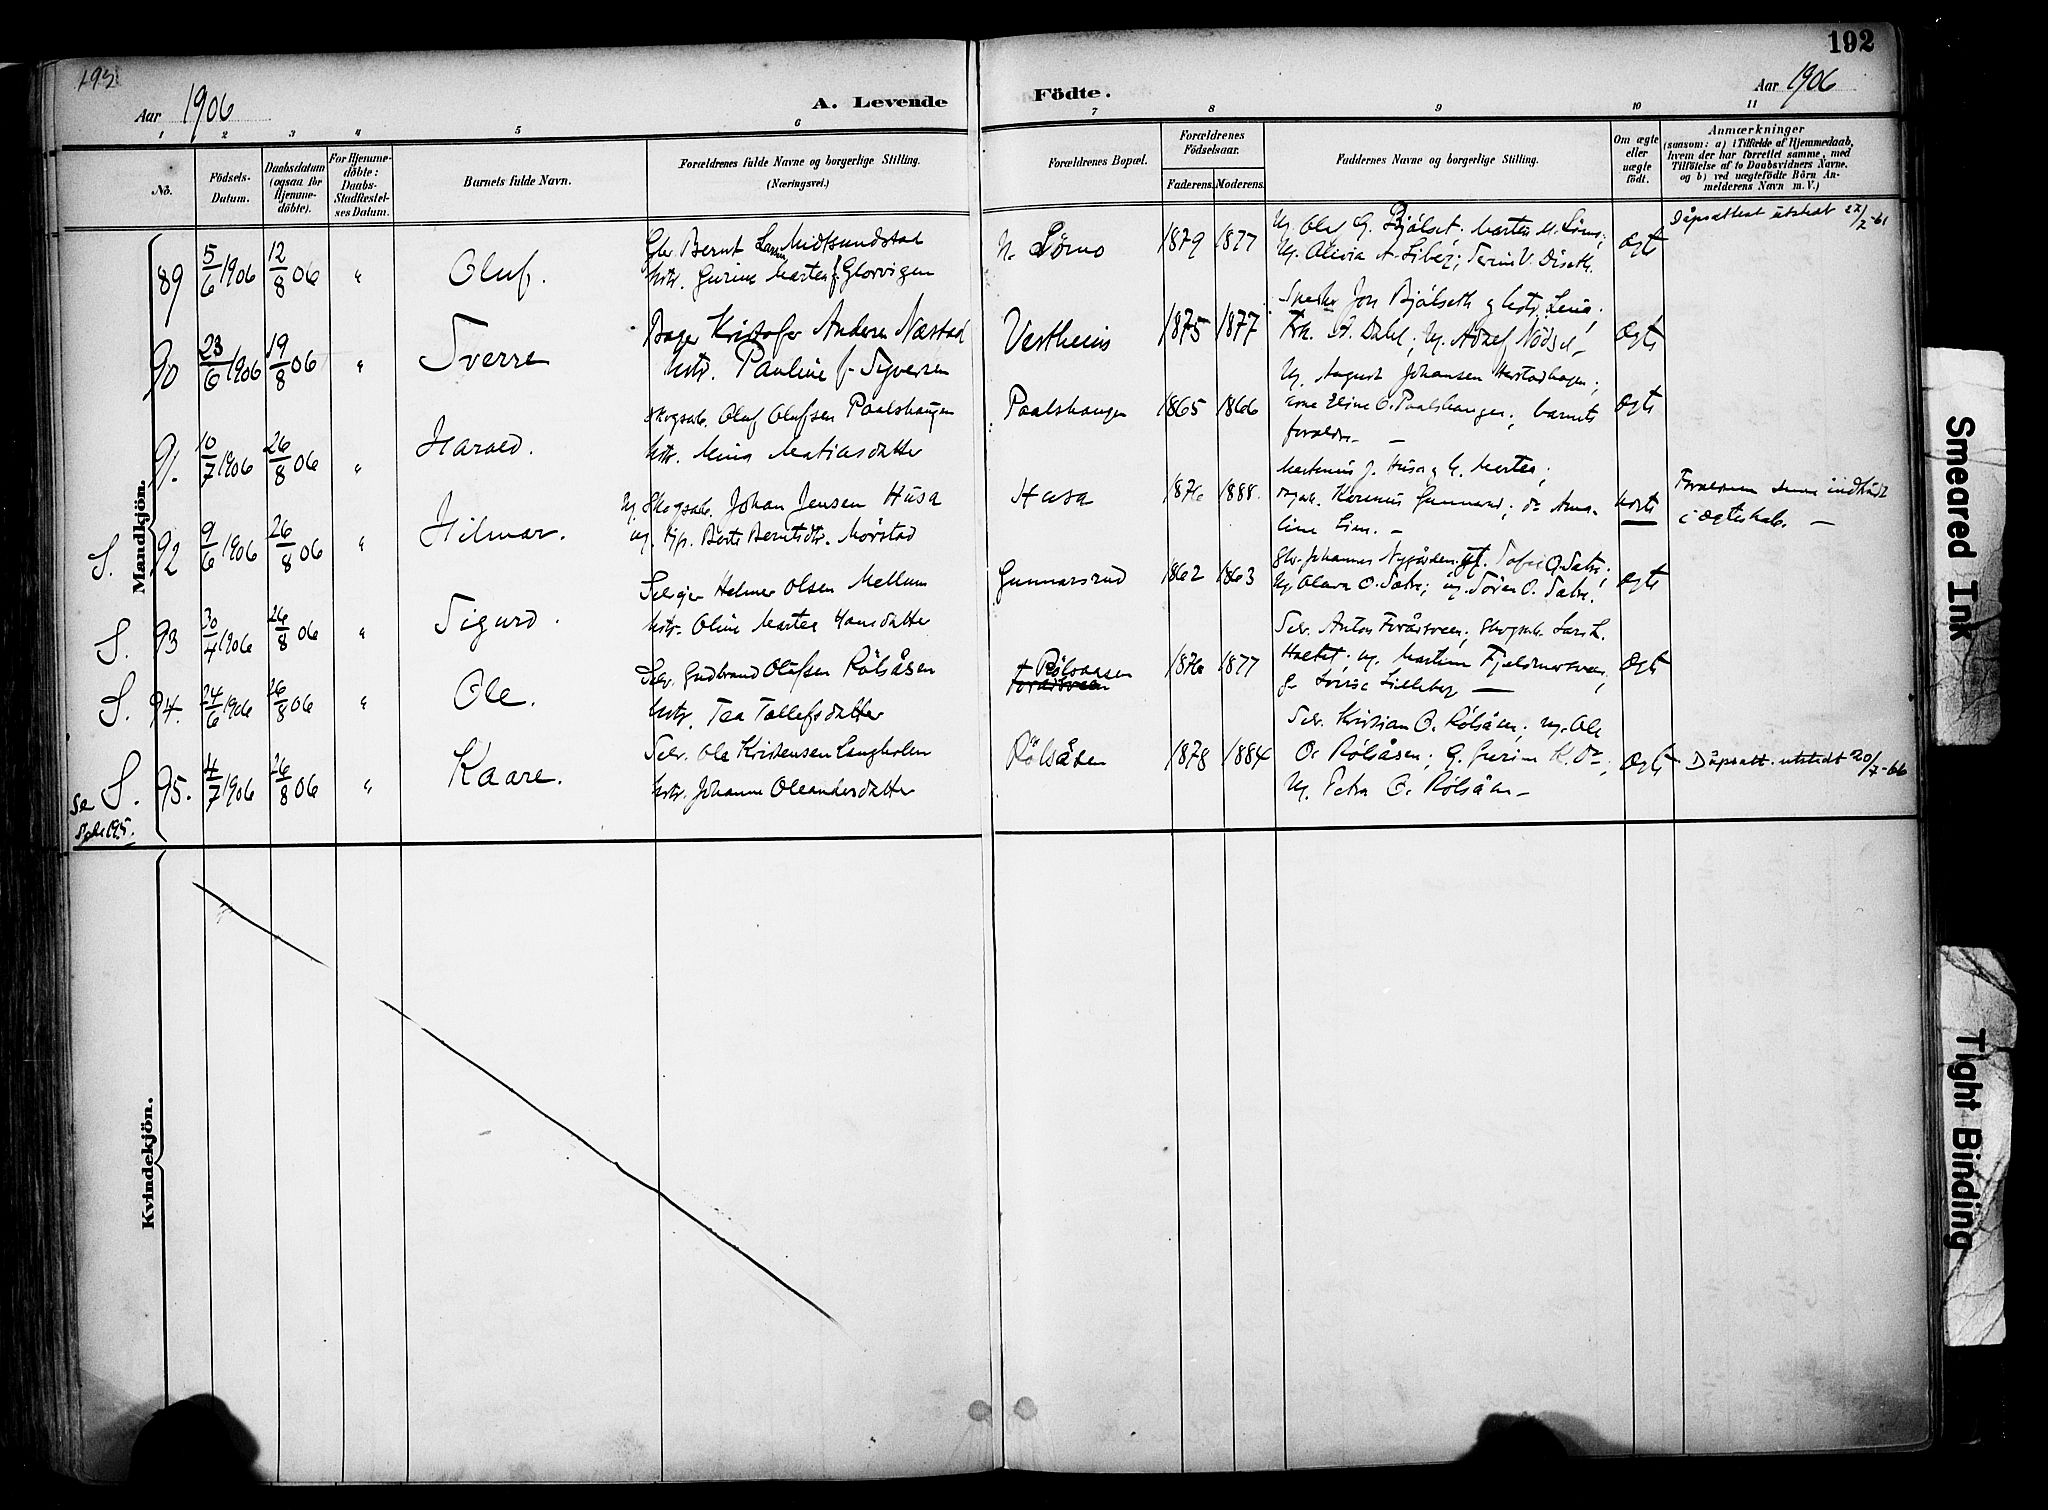 193
192
Aar 1906
A. Levende
Födte.
Aar 1906
1 2 3 4 5 6 7 8 9 10 11
No.
Fødsels-
Datum.
Daabsdatum
(ogsaa for
Hjemme-
døbte).
For Hjemme-
døbte:
Daabs-
Stadfæstel-
ses Datum.
Barnets fulde Navn.
Forældrenes fulde Navne og borgerlige Stilling.
(Næringsvei.)
Forældrenes Bopæl.
Forældrenes
Födselsaar.
Faderens.
Moderens.
Faddernes Navne og borgerlige Stilling.
Om ægte
eller
uægte
födt.
Anmærkninger
(saasom: a) i Tilfælde af Hjemmedaab,
hvem der har forrettet samme, med
Tilföielse af to Daabsvidners Navne.
og b) ved uægtefödte Börn An-
melderens Navn m. V.)
Mandkjön.
89 5/6 1906 12/8 06 " Oluf.
Bernt Larsen Midtsundstad
Hstr. Gurine Martea f. Glorvigen
N. Lørno 1879 1877
Ug. Olaf G. Bjølset;
Ug. Olivia A. Siberg;
Ægte
Dåpsattest utstedt 27/2-61
90 23/6 1906 19/8 06 " Sverre
Bager Kristofer Andersen Næstad
Hstr. Pauline f. Syversen
Vestheim 1875 1877
Jon Bjølseth og Hstr. Lena;
Frk. A. Dahl;
Ægte
91. 10/7 1906 26/8 06 " Harald.
Skogsarb. Oluf Olufsen Paalshaugen
Hstr. Mina Matiasdatter
Paalshaugen 1865 1866
Ug. August Johansen
Eline O. Paalshaugen; barnets
forældre. —
Ægte
S. 92 9/6 1906 26/8 06 " Hilmar.
Ug. Skogsarb. Johan Jensen Husa
Ug. Pige Berte Berntsdtr. Mørstad
Husa 1876 1888.
Martinius J. Husa og H. Martea;
line Lien. —
Forældrene senere indtrådt
i Ægteskab. —
S. 93 30/4 1906 26/8 06 " Sigurd.
Selveier Helmer Olsen Mellum
Hstr. Oline Martea Hansdatter
Gunnarsrud 1862 1863
Johannes Nygården;
Ug. Olava O. Sætre; Ug. Søren O. Sætre.
Ægte
S. 94. 24/6 1906 26/8 06 " Ole.
Selv. Gudbrand Olufsen Rølsåsen
Hstr. Tea Tollefsdatter
+ Rølsaasen
1876 1877
Selv. Anton Forårsveen; Skogsarb. Lars L.
Haltet. Ug. Martin Fjeldmorsveen,
G. Lovise Lilleberg —
Ægte
Se S. 95. 4/7 1906 26/8 06 " Kaare.
Side 195.
Selv. Ole Kristensen Langholen
Hstr. Johanne Oleandersdatter
Rølsåsen 1878 1884
Selv. Kristian O. Rølsåsen; Ug. Ole
O. Rølsåsen; G. Gurine K. Do;
Ug. Petra O. Rølsåsen —
Ægte
Dåpsatt. utstedt 20/7-66
Kvindekjön.
Smeared Ink
Tight Binding